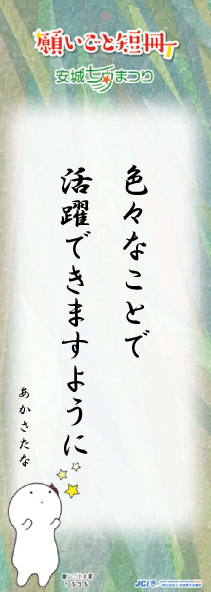 願いごと短冊
安城七夕まつり
色々なことで
活躍できますように
あかさたな
JCI